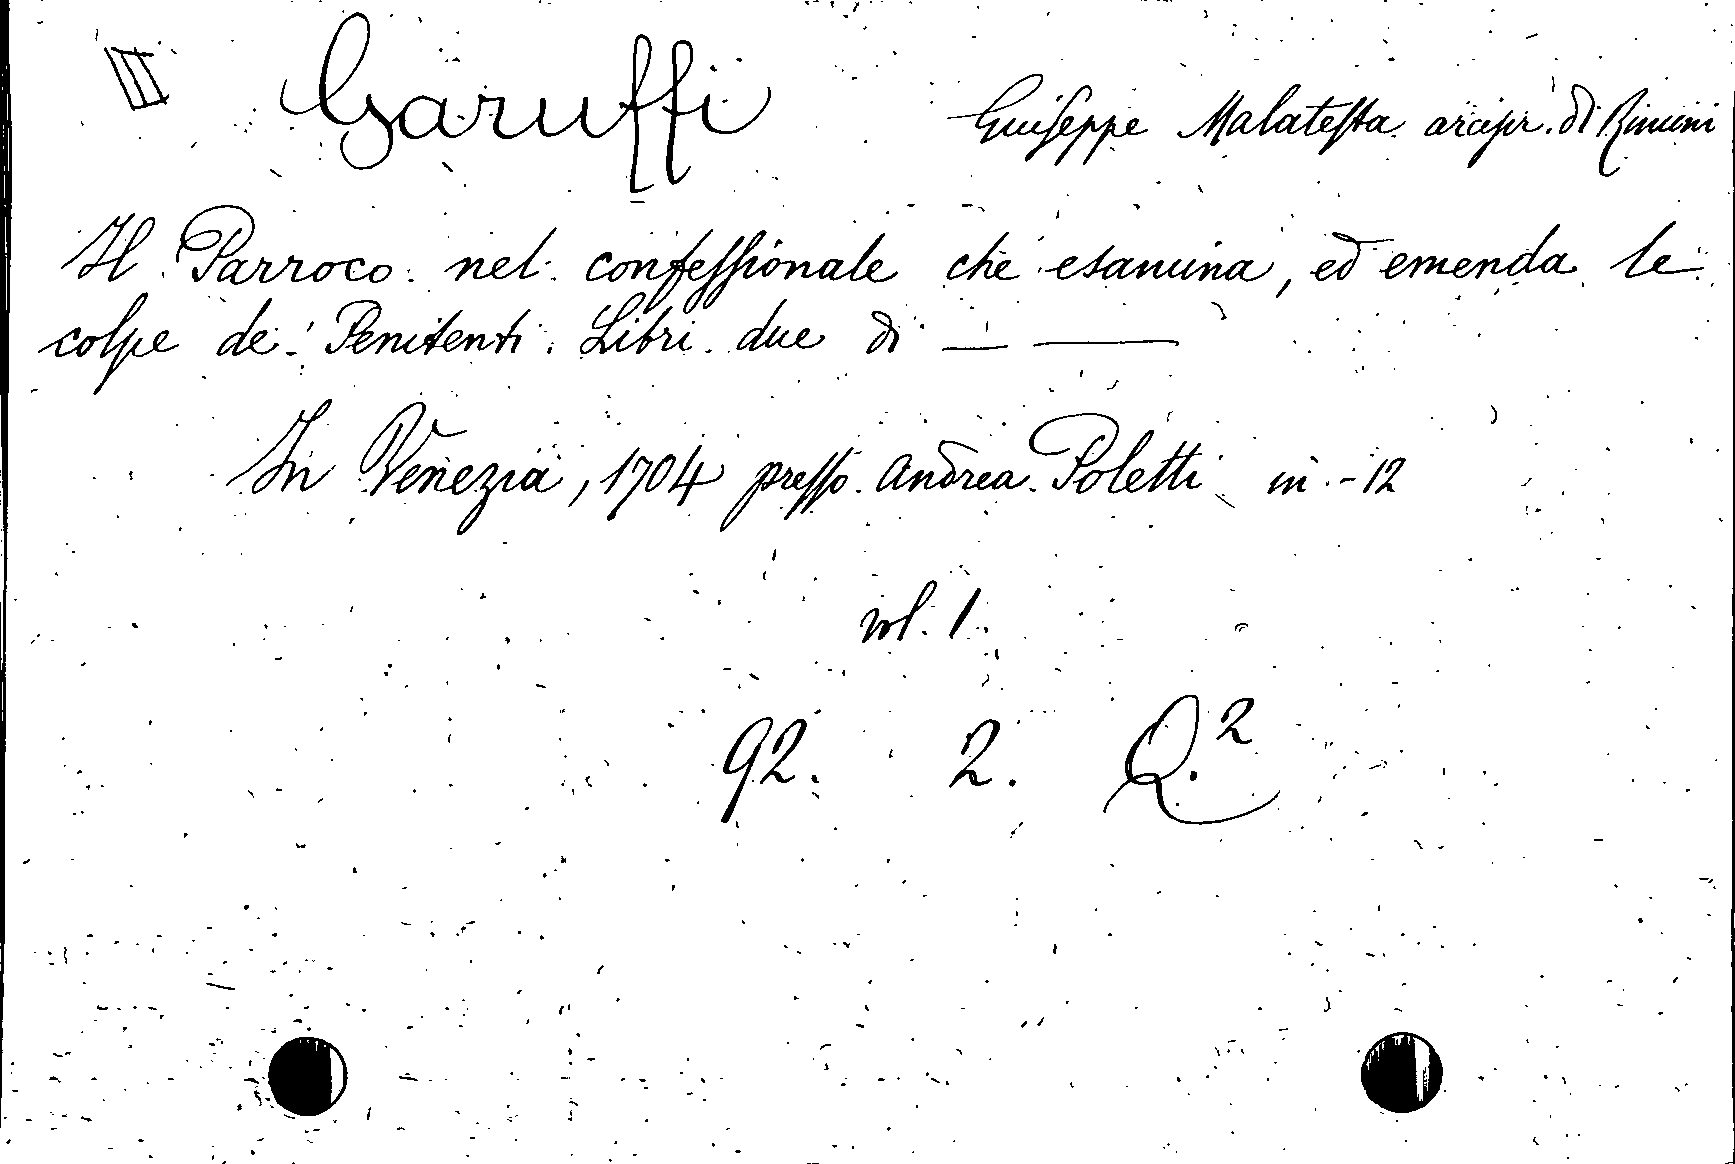 Garuffi Giuseppe Malatesta arcipr. di Rimini
Il Parroco nel confessionale che esamina, ed emenda le
colpe de' Penitenti. Libri due di — —
In Venezia, 1704 presso Andrea Poletti in-12
vol. 1.
92. 2. Q.²